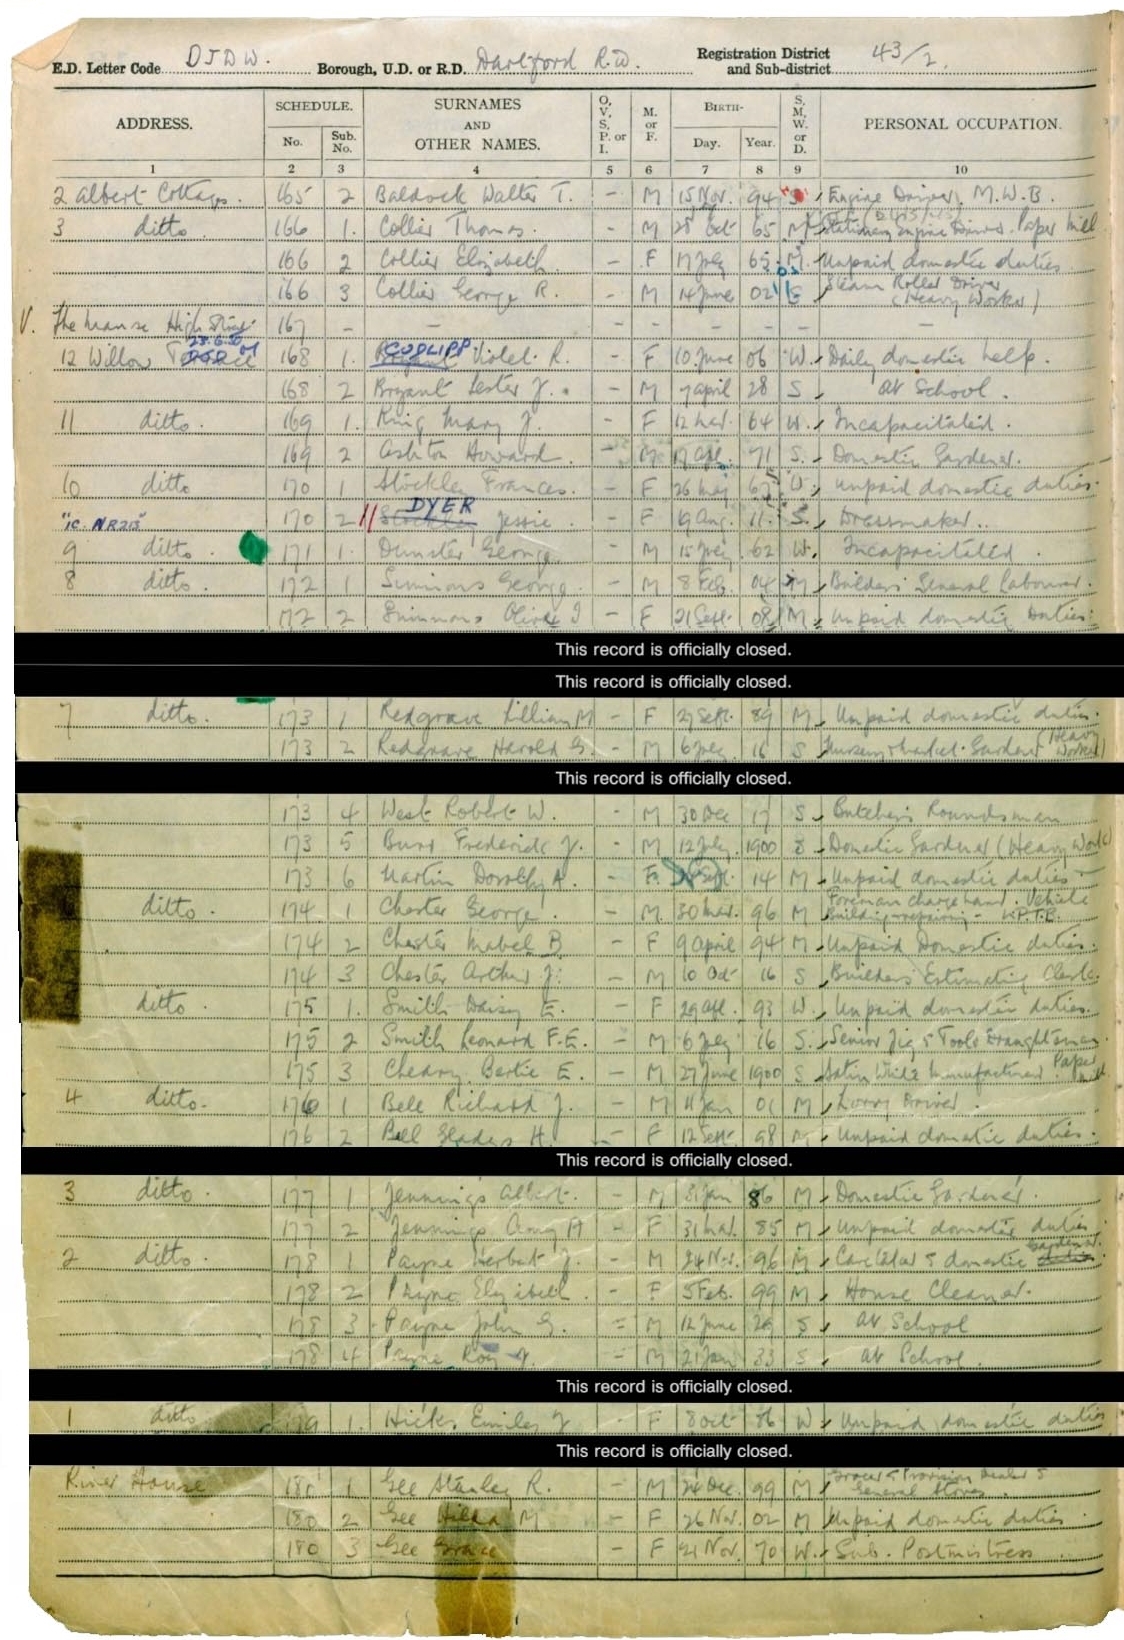 E.D. Letter Code DJDW. Borough, U.D. or R.D. Dartford R.D. Registration District and Sub-district 43/2.
ADDRESS. SCHEDULE. No. Sub. No. SURNAMES AND OTHER NAMES. O, V, S, P. or I. M. or F. BIRTH- Day. Year. S, M, W. or D. PERSONAL OCCUPATION.
1 2 3 4 5 6 7 8 9 10
2 Albert Cottages. 165 2 Baldock Walter T. - M 15 Nov. 94 Engine Driver, M.W.B.
3 ditto. 166 1. Collier Thomas. - M 28 Oct 65 M Stationary Engine Driver. Paper Mill
166 2 Collier Elizabeth - F 17 July 65 M. Unpaid domestic duties.
166 3 Collier George R. - M 14 June 02 S Steam Roller Driver (Heavy Worker)
V. The Manse High Street 167 - - - - - - -
12 Willow Terrace 168 1. Bryant CUDLIPP Violet R. - F. 10 June 06 W. Daily domestic help.
168 2 Bryant Lester J. - M 7 April 28 S At School.
11 ditto. 169 1. King Mary J. - F 12 Mar. 64 W. Incapacitated.
169 2 Ashton Howard. - M 17 Apl. 71 S. Domestic Gardener.
10 ditto 170 1 Stockley Frances. - F 26 May 67 W. Unpaid domestic duties.
"IC. NR213" 170 2 // Stockley DYER Jessie. - F 19 Aug. 11. S. Dressmaker.
9 ditto. 171 1. Dunster George. - M 15 July 62 W. Incapacitated.
8 ditto. 172 1 Simmons George. - M 8 Feb. 04 M Builders General Labourer.
172 2 Simmons Olive I - F 21 Sept. 08 M. Unpaid domestic Duties.
This record is officially closed.
This record is officially closed.
7 ditto. 173 1 Redgrave Lillian M - F 27 Sept. 89 M. Unpaid domestic duties.
173 2 Redgrave Harold G. - M 6 July 16 S Nursery & Market Gardener (Heavy Worker)
This record is officially closed.
173 4 West Robert W. - M 30 Dec 17 S. Butchers Roundsman
173 5 Frederick J. - M 12 July 1900 S Domestic Gardener (Heavy Work)
173 6 Martin Dorothy A. - F. Sept. 14 M Unpaid domestic duties
ditto. 174 1 Chester George. - M. 30 Mar. 96 M Foreman chargehand. Vehicle Building & repairing - L.P.T.B.
174 2 Chester Mabel B - F 9 April 94 M Unpaid Domestic duties.
174 3 Chester Arthur J. - M 10 Oct 16 S Builders Estimating Clerk.
ditto. 175 1. Smith Daisy E. - F 29 Apl. 93 W. Unpaid domestic duties.
175 2 Smith Leonard F.E. - M 6 July 16 S. Senior Jig & Tools Draughtsman.
175 3 Bertie E. - M 27 June 1900 S Satin White Manufacturer. Paper Mill
4 ditto. 176 1 Bell Richard J. - M 11 Jan 01 M Lorry Driver.
176 2 Bell Gladys H. - F 12 Sept. 98 M. Unpaid domestic duties.
This record is officially closed.
3 ditto. 177 1 Jennings Albert. - M 31 Jan 86 M Domestic Gardener.
177 2 Jennings Amy A - F 31 Mar. 85 M Unpaid domestic duties
2 ditto. 178 1 Payne Herbert J. - M 24 Nov. 96 M Caretaker & domestic gardener.
178 2 Payne Elizabeth. - F 5 Feb. 99 M House Cleaner.
178 3 Payne John G. - M 12 June 26 S At School
178 4 Payne Roy A. - M 21 Jan 33 S At School.
This record is officially closed.
1 ditto 179 1. Hicks Emily J - F 8 Oct 86 W Unpaid domestic duties
This record is officially closed.
River House 180 1 Gee Stanley R. - M 24 Dec. 99 M Grocer & Provision Dealer & General Stores.
180 2 Gee Hilda M - F 26 Nov. 02 M Unpaid domestic duties.
180 3 Gee Grace - F 21 Nov. 70 W. Sub. Postmistress